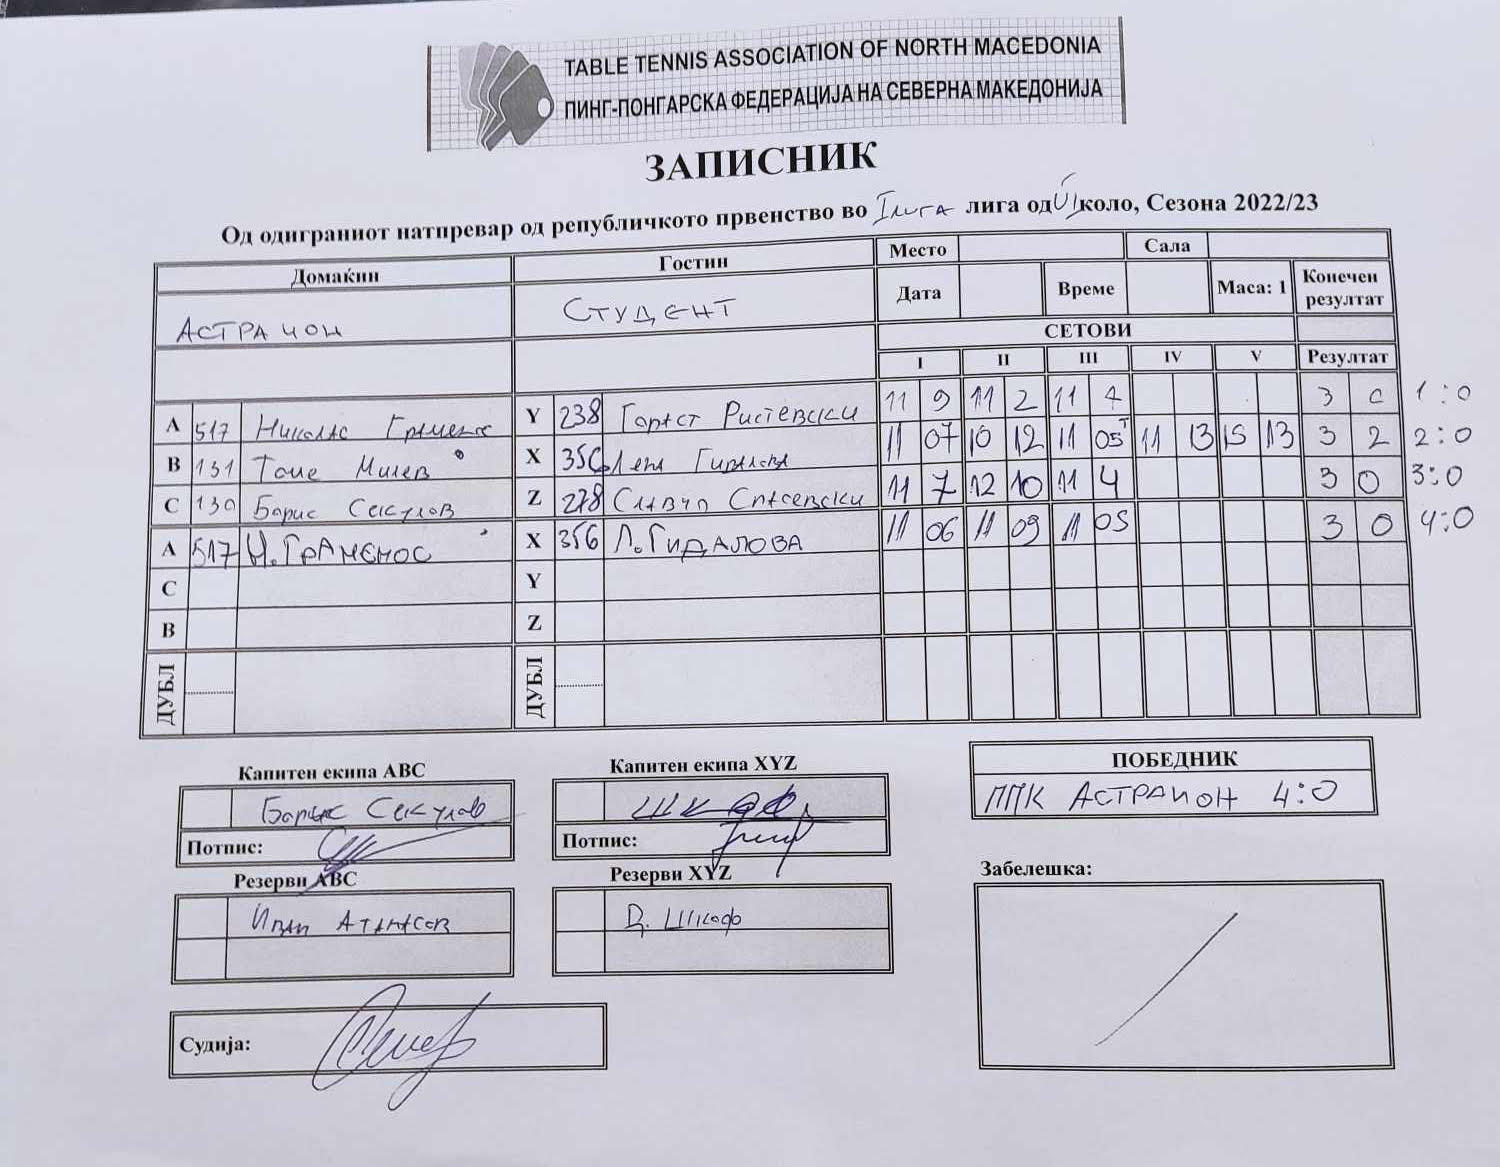 TABLE TENNIS ASSOCIATION OF NORTH MACEDONIA
ПИНГ-ПОНГАРСКА ФЕДЕРАЦИЈА НА СЕВЕРНА МАКЕДОНИЈА
ЗАПИСНИК
Од одиграниот натпревар од републичкото првенство во I лига лига од VI коло, Сезона 2022/23
Домаќин Гостин Место Сала
Дата Време Маса: 1 Конечен резултат
АСТРАИОН СТУДЕНТ
СЕТОВИ
I II III IV V Резултат
A 517 Николас Граменос Y 238 Гораст Ристевски 11 9 11 2 11 4 3 0 1:0
B 131 Томе Милев X 356 Лена Гидалова 11 07 10 12 11 05 11 13 15 13 3 2 2:0
C 130 Борис Секулов Z 278 Славчо Спасевски 11 7 12 10 11 4 3 0 3:0
A 517 Н. ГРАМЕНОС X 356 Л. ГИДАЛОВА 11 06 11 09 11 05 3 0 4:0
C Y
B Z
ДУБЛ ДУБЛ
Капитен екипа ABC Капитен екипа XYZ ПОБЕДНИК
Борис Секулов Шкоф ППК АСТРАИОН 4:0
Потпис: Потпис:
Резерви ABC Резерви XYZ Забелешка:
Иван Атанасов Д. Шкоф
Судија: